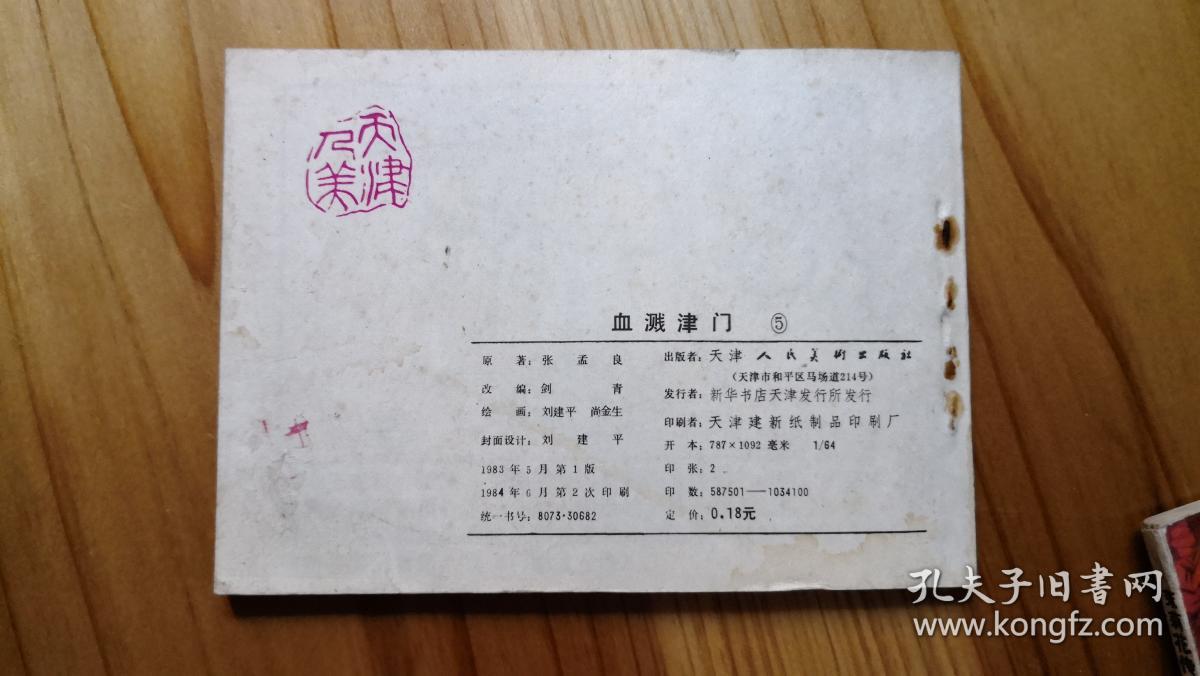 天津
人美
血溅津门 ⑤
原著：张孟良
改编：剑青
绘画：刘建平 尚金生
封面设计：刘建平
1983年5月第1版
1984年6月第2次印刷
统一书号：8073·30682
出版者：天津人民美術出版社
（天津市和平区马场道214号）
发行者：新华书店天津发行所发行
印刷者：天津建新纸制品印刷厂
开本：787×1092毫米 1/64
印张：2
印数：587501——1034100
定价：0.18元
孔夫子旧书网
www.kongfz.com